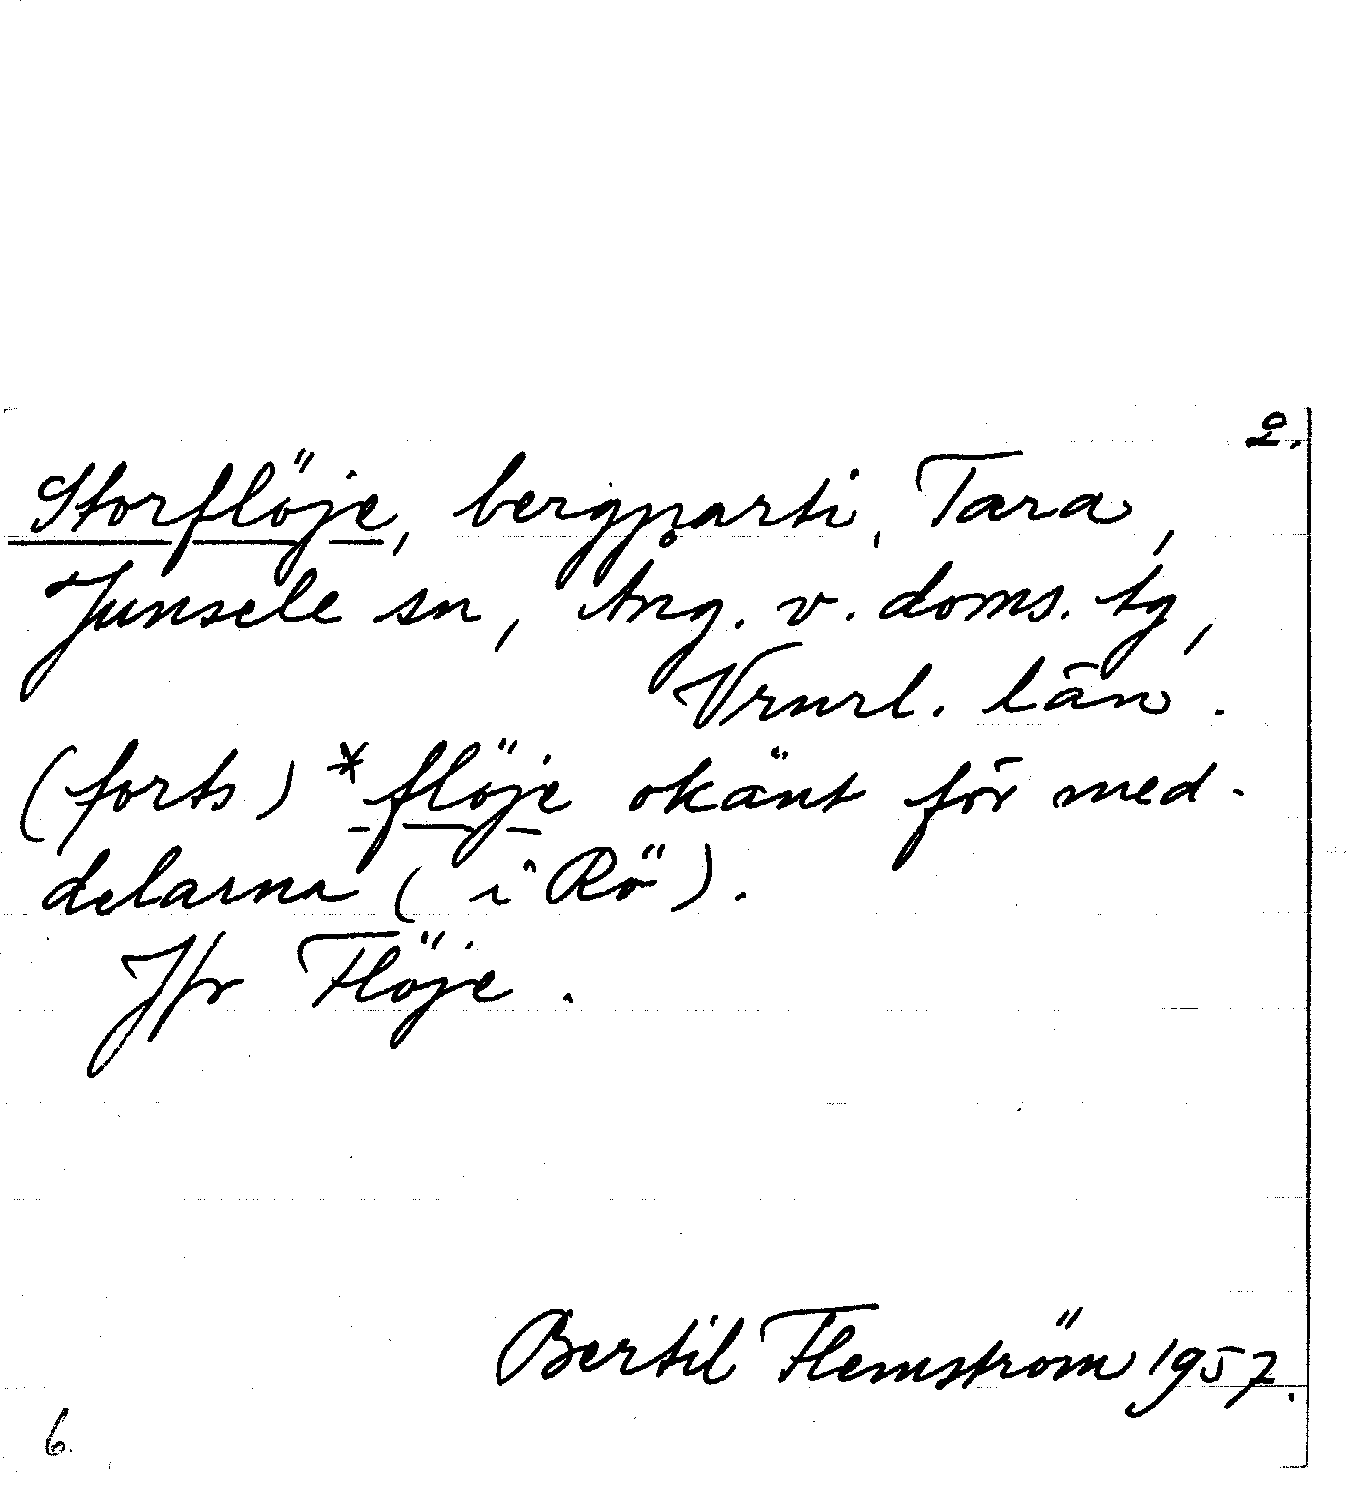 2.
Storflöje, bergparti, Tara,
Junsele sn, Ång. v. doms. tg,
Vrnrl. län.
(forts) *flöje okänt för med-
delarna (i Rö).
Jfr Flöje.
Bertil Flemström 1957.
6.